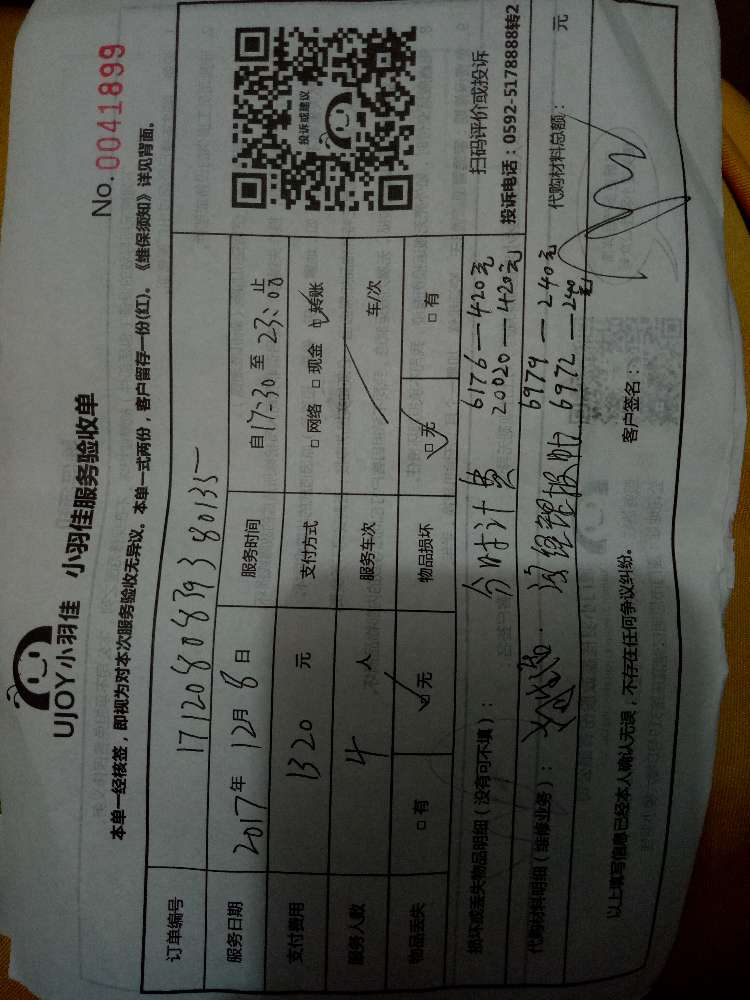 UJOY小羽佳 小羽佳服务验收单
No. 0041899
本单一经核签，即视为对本次服务验收无异议。本单一式两份，客户留存一份(红)。《维保须知》详见背面。
订单编号 1712080839380135
服务日期 2017年 12月 8日 服务时间 自17:30至23:00止
支付费用 1320 元 支付方式 □网络 □现金 ☑转账
服务人数 4 人 服务车次 车/次
物品丢失 □有 ☑无 物品损坏 ☑无 □有
投诉或建议
扫码评价或投诉
投诉电话：0592-5178888转2
损坏或丢失物品明细（没有可不填）： 分时计费 6176—420元
20020—420元
代购材料明细（维修业务）： 6979—240元
6972—240元
代购材料总额： 元
以上填写信息已经本人确认无误，不存在任何争议纠纷。 客户签名：